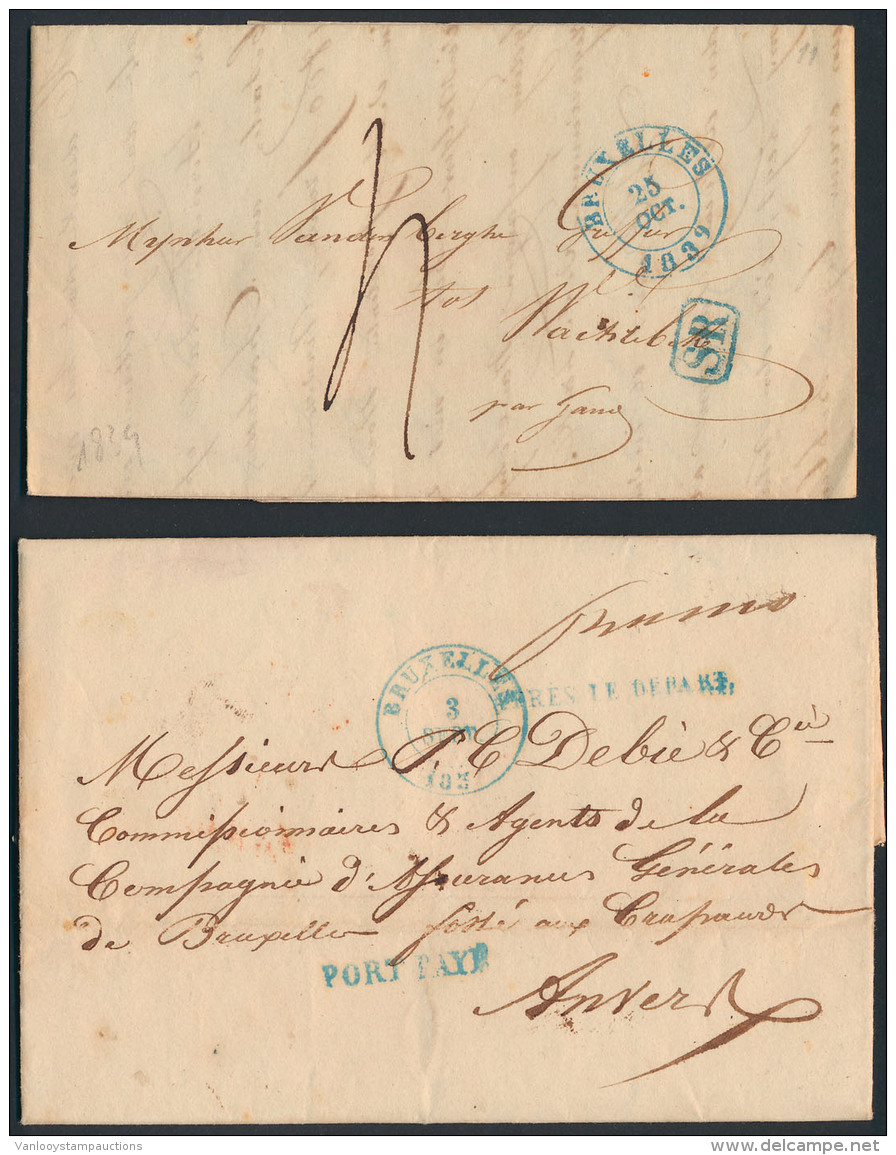 11
BRUXELLES
25
OCT.
1839
Mynheer Vanden Berghe
tot
Wachtebeke
SR
par Gand
4
1839
franco
BRUXELLES
3
SEPT
183
RES LE DEPART,
Messieurs J. C. Debie & Cie
Commissionnaires & Agents de la
Compagnie d'Assurances Générales
de Bruxelles fossé aux Crapauds
PORT PAYE
Anvers
Vanlooystampauctions
www.delcampe.net